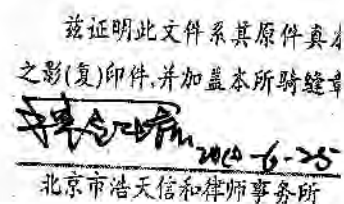 兹证明此文件系其原件真本
之影(复)印件,并加盖本所骑缝章
北京市浩天信和律师事务所